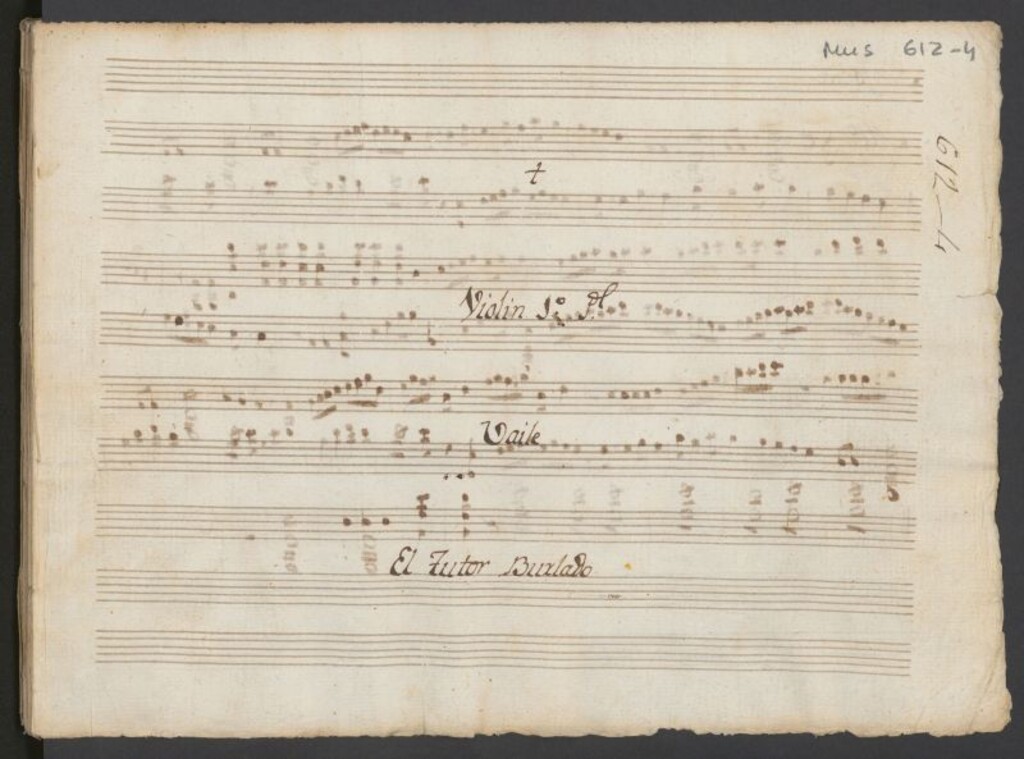 Mus 612-4
612-4
t
Violin 1º Pl
Vaile
El Tutor Burlado